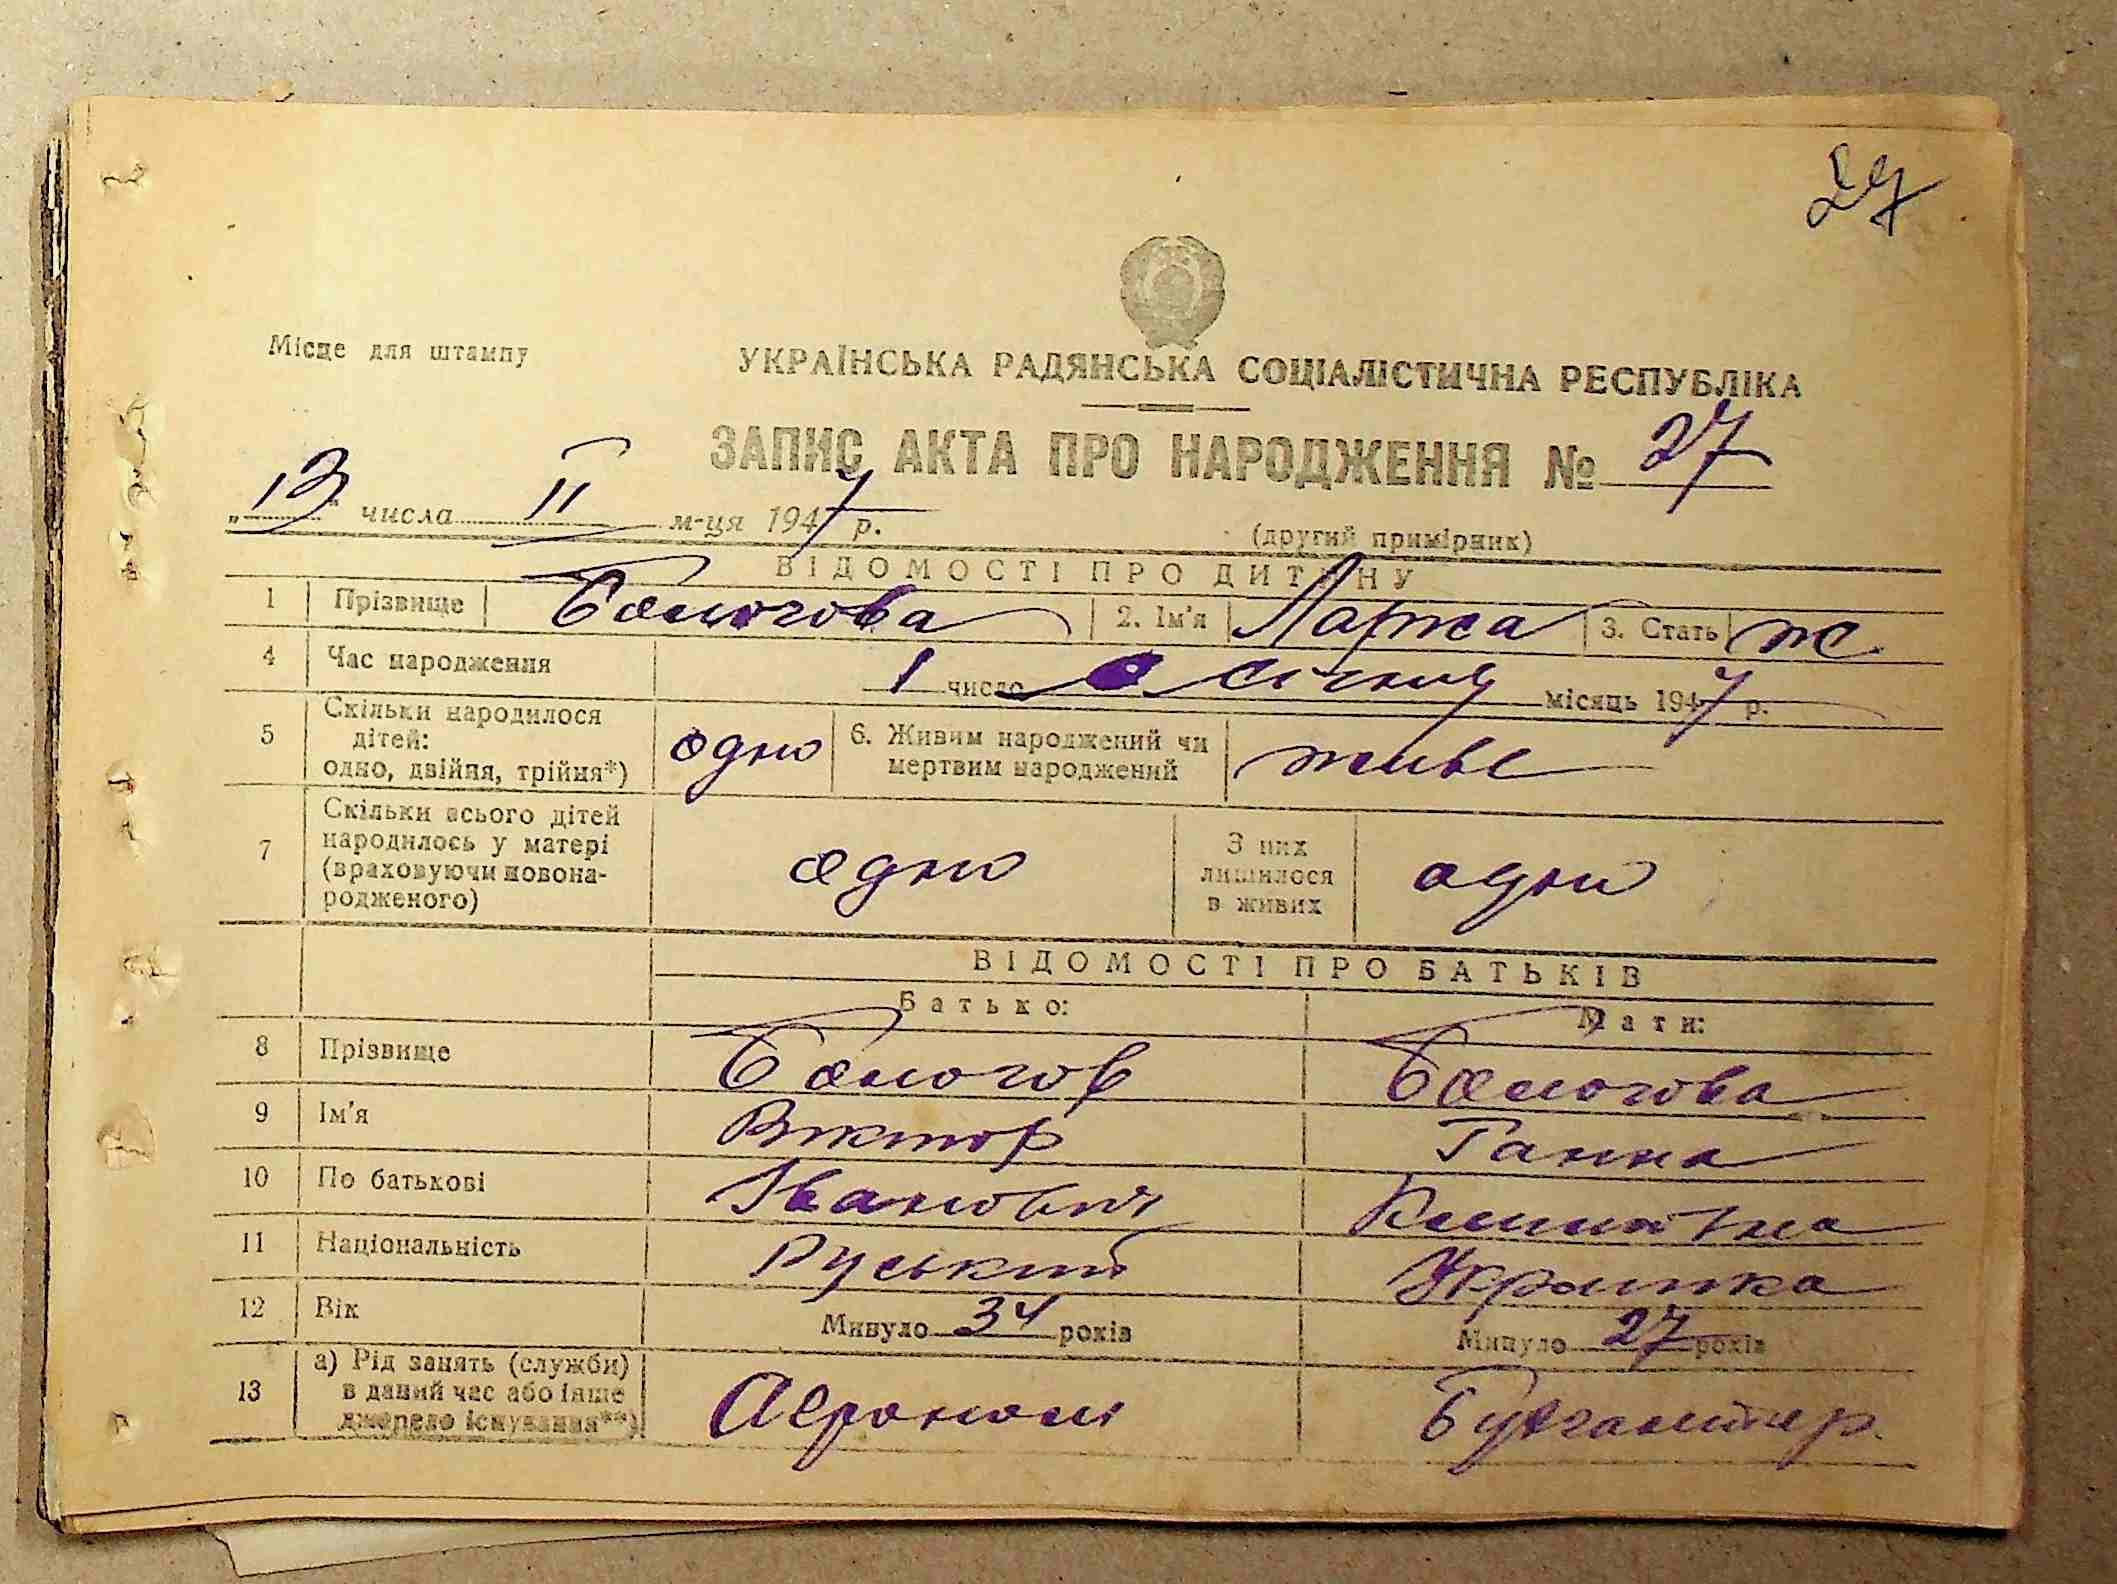 27
Місце для штампу
УКРАЇНСЬКА РАДЯНСЬКА СОЦІАЛІСТИЧНА РЕСПУБЛІКА
ЗАПИС АКТА ПРО НАРОДЖЕННЯ № 27
„13" числа II м-ця 1947 р.
(другий примірник)
ВІДОМОСТІ ПРО ДИТИНУ
1 Прізвище Бологова 2. Ім'я Лариса 3. Стать ж
4 Час народження 1 число січня місяць 1947 р.
5 Скільки народилося дітей: одно, двійня, трійня*) одно 6. Живим народжений чи мертвим народжений живе
7 Скільки всього дітей народилось у матері (враховуючи новонародженого) одно З них лишилося в живих одно
ВІДОМОСТІ ПРО БАТЬКІВ
Батько: Мати:
8 Прізвище Бологов Бологова
9 Ім'я Виктор Ганна
10 По батькові Іванович
11 Національність Руський Украінка
12 Вік Минуло 34 років Минуло 27 років
13 а) Рід занять (служби) в даний час або інше джерело існування**) Агроном Бухгалтер.